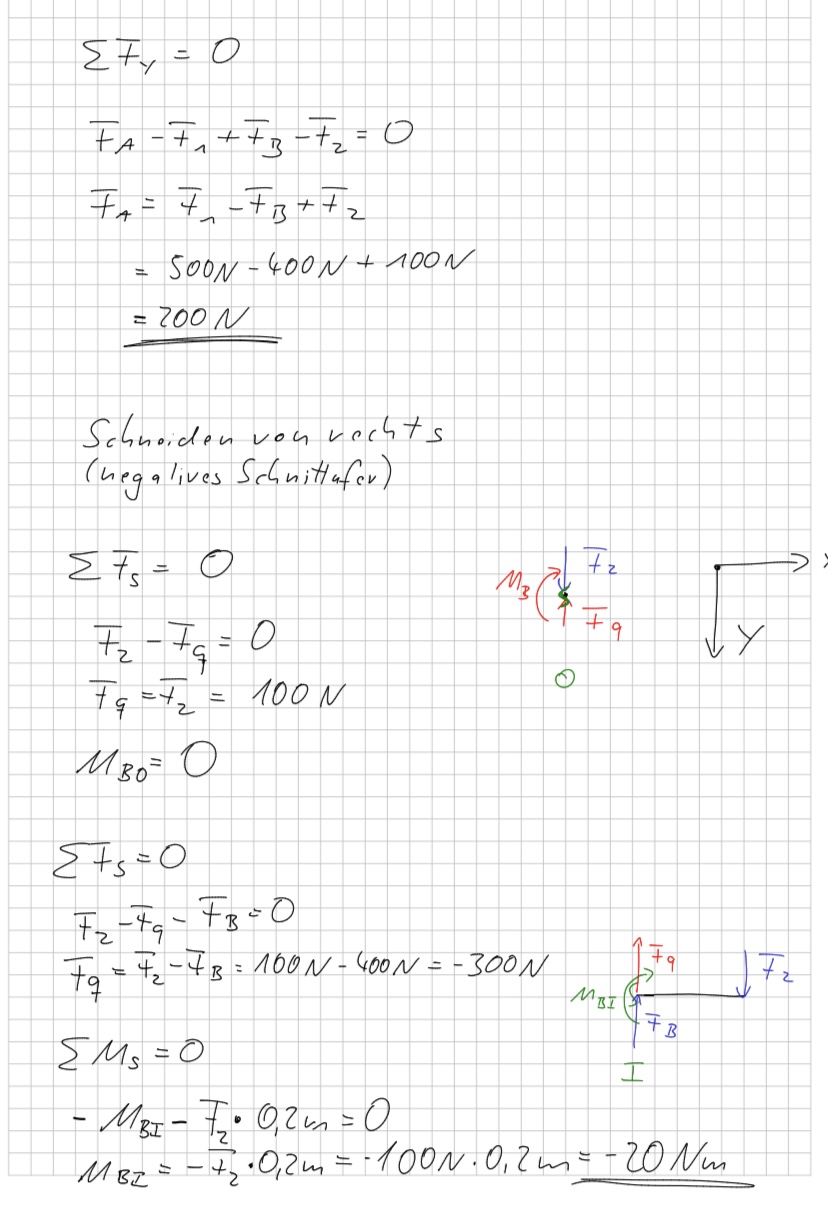 ΣF_Y = 0
F_A - F_1 + F_B - F_2 = 0
F_A = F_1 - F_B + F_2
= 500N - 400N + 100N
= 200N
Schneiden von rechts
(negatives Schnittufer)
ΣF_S = 0
F_2 - F_q = 0
F_q = F_2 = 100N
M_B0 = 0
F_2
M_B
F_q
0
X
Y
ΣF_S = 0
F_2 - F_q - F_B = 0
F_q = F_2 - F_B = 100N - 400N = -300N
ΣM_S = 0
- M_BI - F_2 · 0,2m = 0
M_BI = -F_2 · 0,2m = -100N · 0,2m = -20Nm
F_q
F_2
M_BI
F_B
I